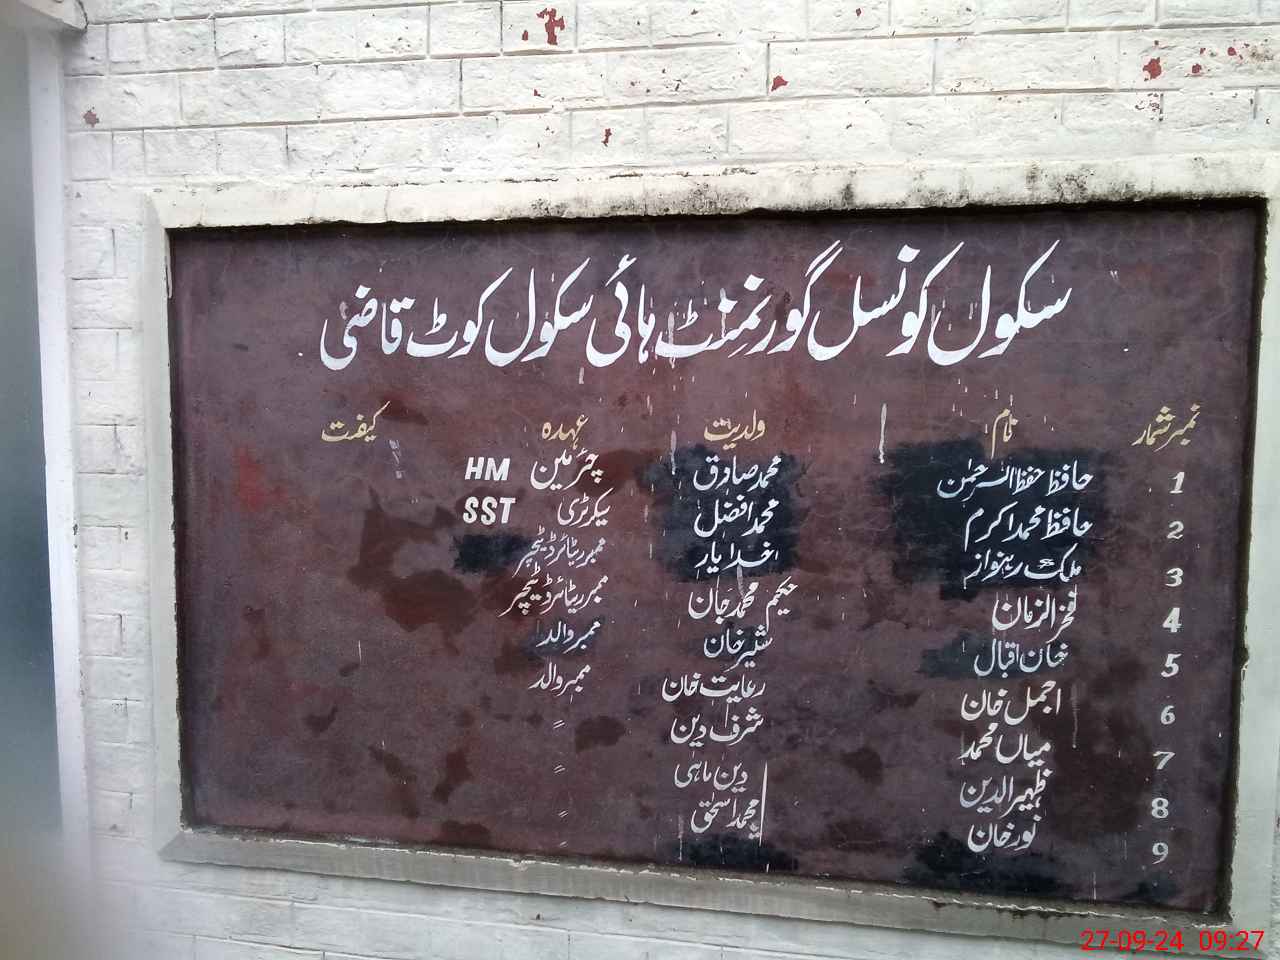 سکول کونسل گورنمنٹ ہائی سکول کوٹ قاضی
نمبر شمار نام ولدیت عہدہ کیفیت
1 حافظ حفظ الرحمٰن محمد صادق چئرمین HM
2 حافظ محمد اکرم محمد افضل سیکرٹری SST
3 ملک رہنواز خدا یار ممبر ریٹائرڈ ٹیچر
4 فخر الزمان حکیم محمد جان ممبر ریٹائرڈ ٹیچر
5 خان اقبال شیر خان ممبر والد
6 اجمل خان رعایت خان ممبر والد
7 میاں محمد شرف دین 〃
8 ظہیر الدین دین ماہی 〃
9 نور خان محمد اسحٰق 〃
27-09-24 09:27